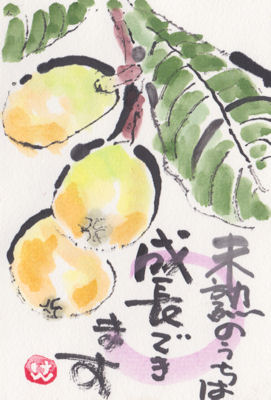 未熟のうちは
成長でき
ます